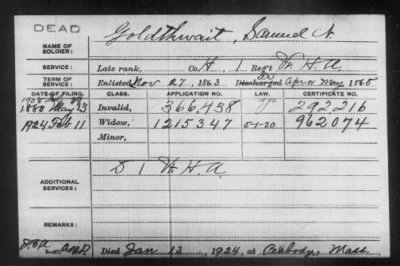 DEAD
NAME OF SOLDIER: Goldthwait, Samuel A.
SERVICE: Late rank, Co. H, 1 Reg't H. A.
TERM OF SERVICE: Enlisted Nov 27, 1863 Discharged Apr or May, 1865
DATE OF FILING. CLASS. APPLICATION NO. LAW. CERTIFICATE NO.
1880 May 3 Invalid, 366,458 292,216
1924 Feb 11 Widow, 1215347 5-1-20 962074
Minor,
ADDITIONAL SERVICES: D 1 H. A.
REMARKS:
Died Jan 13, 1924, at Peabody, Mass.